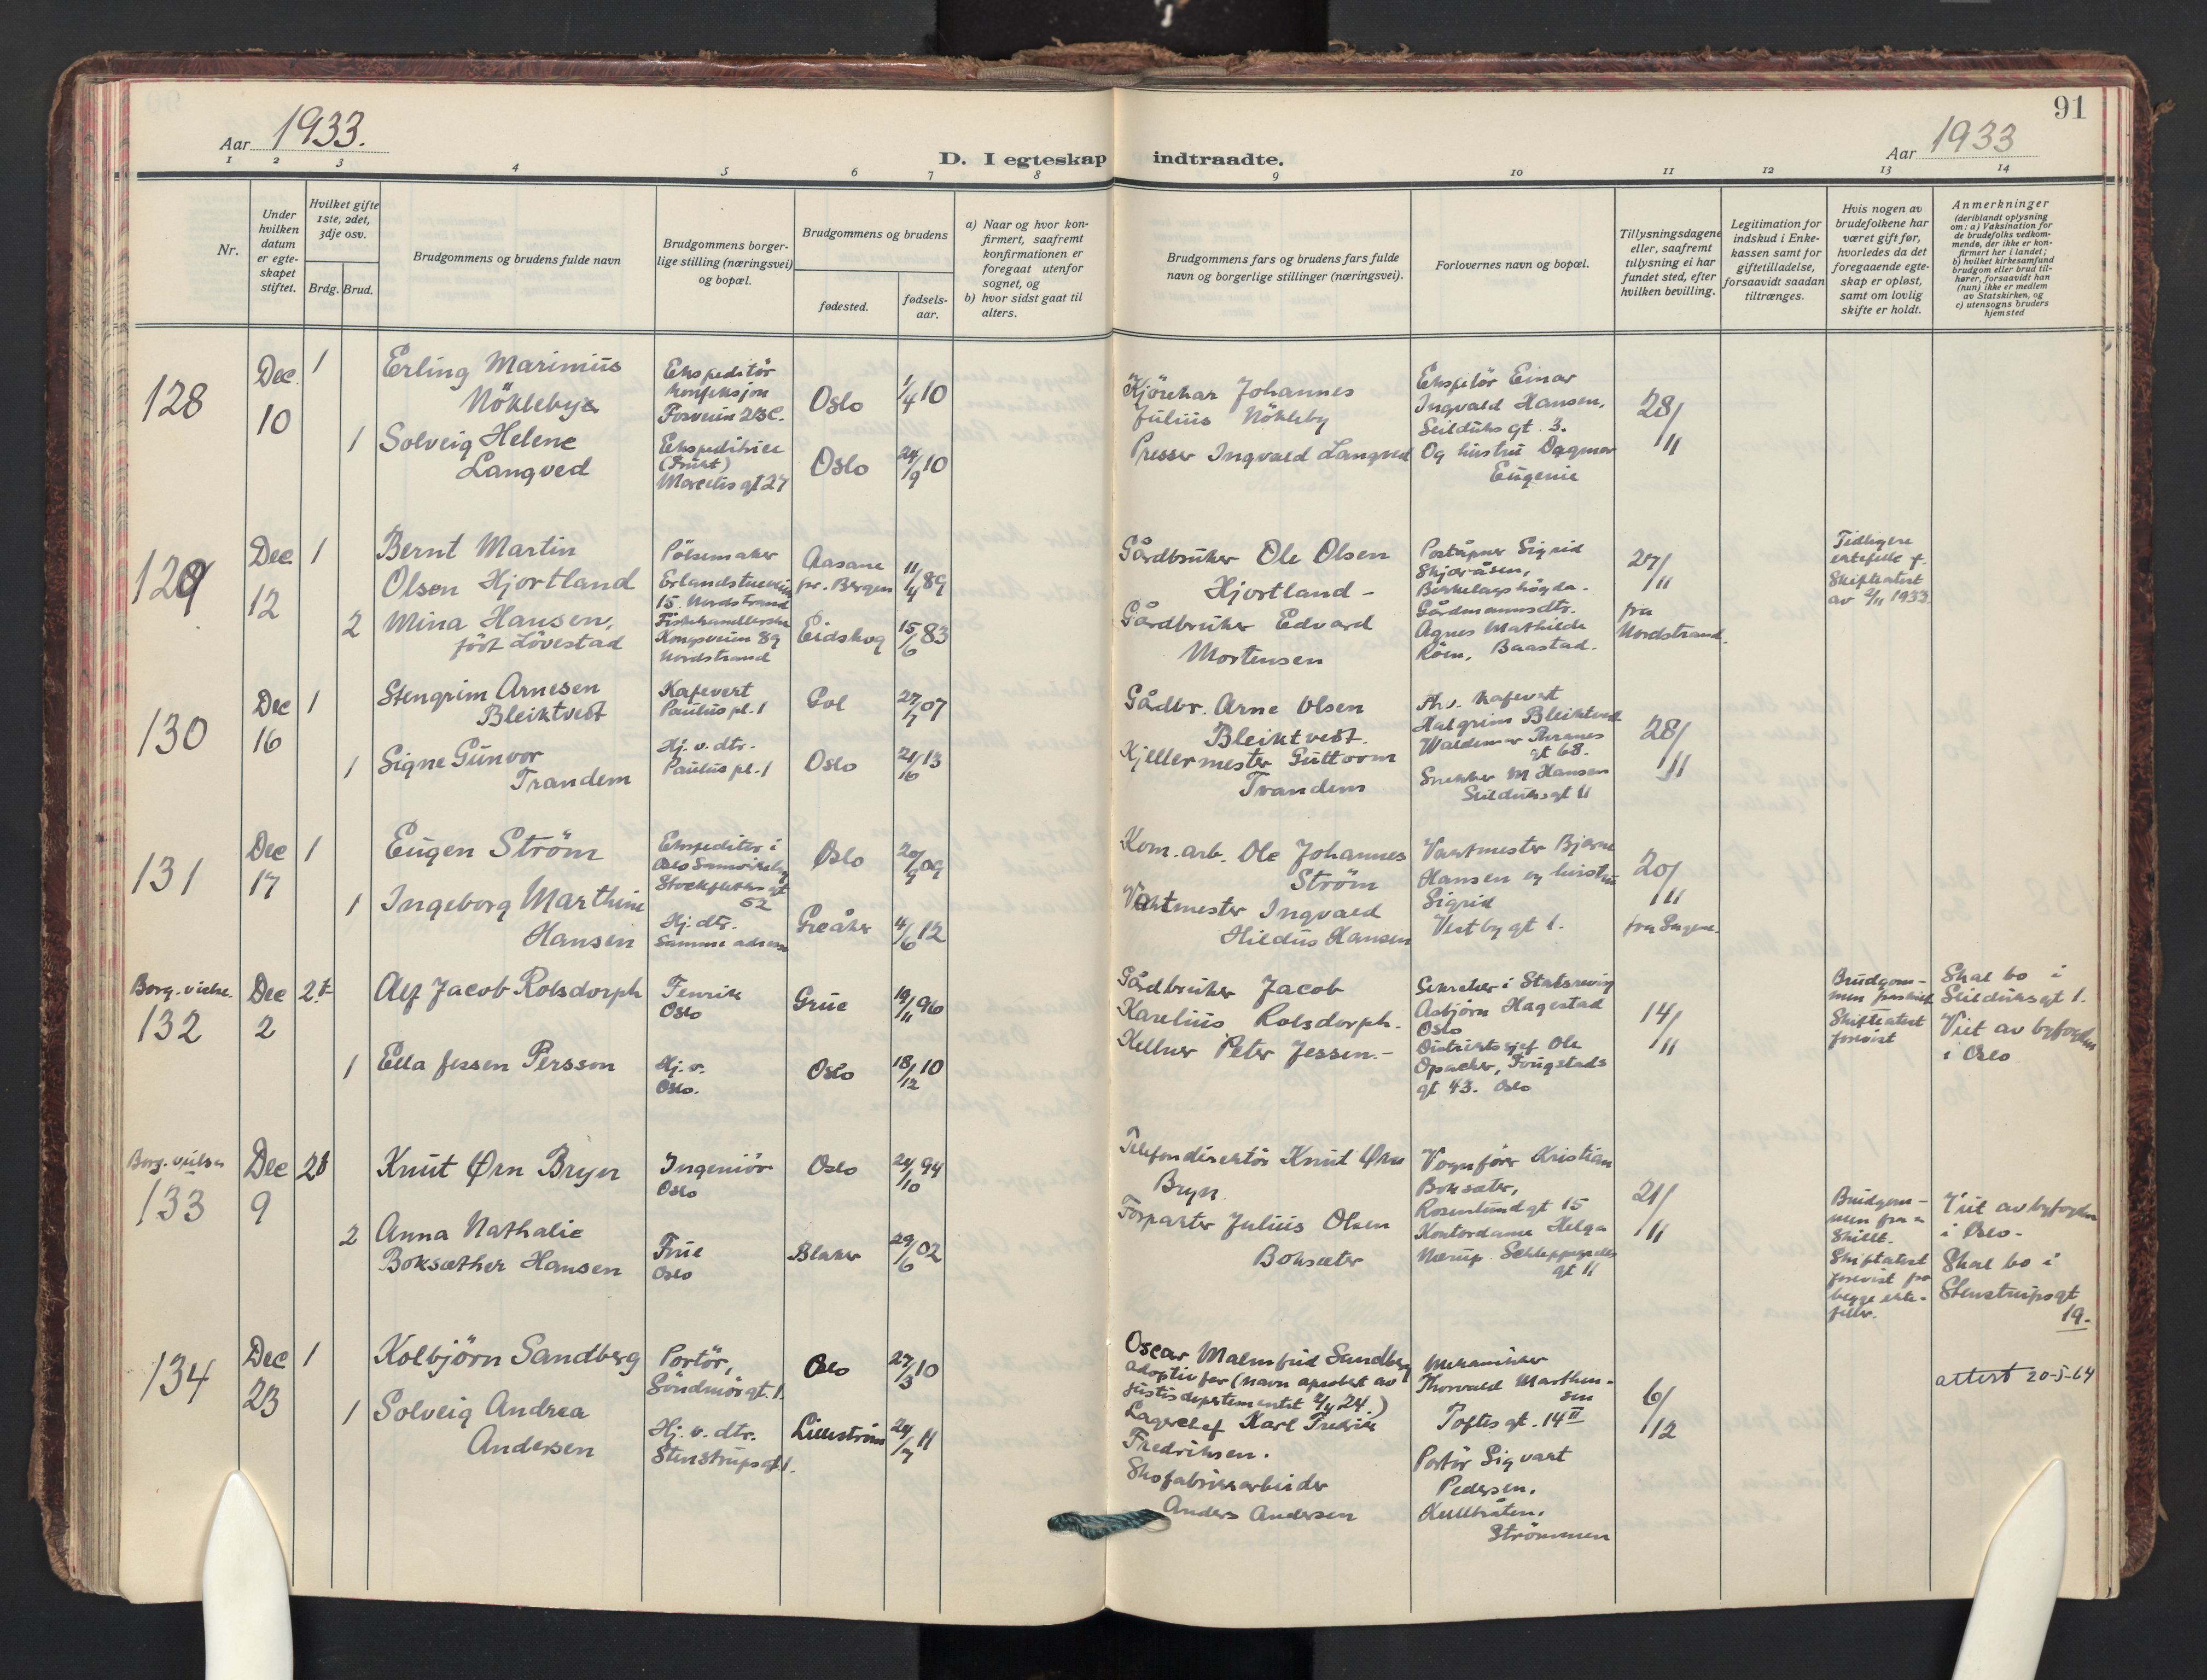 91
Aar 1933.
D. I egteskap indtraadte.
Aar 1933
1 2 3 4 5 6 7 8 9 10 11 12 13 14
Nr.
Under hvilken datum er egte-skapet stiftet.
Hvilket gifte 1ste, 2det, 3dje osv.
Brdg. Brud.
Brudgommens og brudens fulde navn
Brudgommens borger-
lige stilling (næringsvei)
og bopæl.
Brudgommens og brudens
fødested.
fødsels-
aar.
a) Naar og hvor kon-
firmert, saafremt
konfirmationen er
foregaat utenfor
sognet, og
b) hvor sidst gaat til
alters.
Brudgommens fars og brudens fars fulde
navn og borgerlige stillinger (næringsvei).
Forlovernes navn og bopæl.
Tillysningsdagene
eller, saafremt
tillysning ei har
fundet sted, efter
hvilken bevilling.
Legitimation for
indskud i Enke-
kassen samt for
giftetilladelse,
forsaavidt saadan
tiltrænges.
Hvis nogen av
brudefolkene har
været gift før,
hvorledes da det
foregaaende egte-
skap er opløst,
samt om lovlig
skifte er holdt.
Anmerkninger
(deriblandt oplysning
om: a) Vaksination for
de brudefolks vedkom-
mende, der ikke er kon-
firmert her i landet;
b) hvilket kirkesamfund
brudgom eller brud til-
hører, forsaavidt han
(hun) ikke er medlem
av Statskirken, og
c) utensogns bruders
hjemsted
128
Dec.
10
1
Erling Marinius
Nökleby
Ekspeditör
konfeksjon
Fosveien 23 C.
Oslo
1/4 10
1
Solveig Helene
Langved
Ekspeditrice
(Frukt)
Marcelis gt 27
Oslo
24/9 10
Kjörekar Johannes
Julius Nökleby
Presser Ingvald Langved
Ekspetör Einar
Ingvald Hansen,
Seilduks gt. 3.
Og hustru Dagmar
Eugenie
28/11
129
Dec
12
1
Bernt Martin
Olsen Hjortland
Pölsemaker
Erlandstuveien
15. Nordstrand
Aasane
pr. Bergen
89
2
Mina Hansen,
födt Lövestad
Fiskehandlerske
Kongsveien 89
Nordstrand
Eidskog
15/6 83
Gårdbruker Ole Olsen
Hjortland -
Gårdbruker Edvard
Mortensen
Poståpner Sigrid
Skjæråsen,
Bekkelagshögda.
Gårdmannsdtr.
Agnes Mathilde
Röen, Baastad.
27/11
fra
Nordstrand.
Tidligere
ektefelle †.
Skifteatest
av 2/11 1933
130
Dec
16
1
Stengrim Arnesen
Bleiktvedt
Kafevert
Paulus pl. 1
Gol
27/7 07
1
Signe Gunvor
Trandem
Hj. v. dtr.
Paulus pl. 1
Oslo
13
Gårdbr. Arne Olsen
Bleiktvedt.
Kjellermester Guttorm
Trandem
Fhv. Kafevert
Halgrim Bleiktvedt
Waldemar Thranes
gt 68.
Snekker M Hansen
Seilduksgt 11
28/11
131
Dec
17
1
Eugen Ström
Ekspeditör i
Oslo Samvirkelag
Stockfleths gt
52
Oslo
20/9 09
1
Ingeborg Marthine
Hansen
Hj. dtr.
Samme adresse
Greåker
12
Kom. arb. Ole Johannes
Ström
Vaktmester Ingvald
Hildus Hansen
Vaktmester Bjarne
Hansen og hustru
Sigrid
Vestby gt 1.
20/11
fra Sagene.
Borg. vielse.
132
Dec
2
2t
Alf Jacob Rolsdorph
Fenrik
Oslo
Grue
19/11 96
1
Ella Jessen Persson
Hj. v.
Oslo.
Oslo
18/12 10
Gårdbruker Jacob
Karelius Rolsdorph.
Kellner Peter Jessen. -
Sekretær i Statsrevisj
Asbjørn Hagestad
Oslo
Distriktssjef Ole
Opacker, Fougstads
gt 43. Oslo
14/11
Brudgom-
men fraskilt
Skifteatest
forevist
Skal bo i
Seilduksgt 1.
Viet av byfogden
i Oslo
Borg. vielse
133
Dec
9
2t
Knut Ørn Bryn
Ingeniör
Oslo
Oslo
24/10 94
2
Anna Nathalie
Boksæther Hansen
Frue
Oslo
Blaker
29/6 02
Telefondirektör Knut Ørn
Bryn.
Forparter Julius Olsen
Boksæter
Vognförer Kristian
Boksæter,
Rosenlundgt 15
Kontordame Helga
Nærup. Schleppegrells
gt 11
21/11
Brudgom-
men fra-
skillt.
Skifteatest
forevist fra
begge ekte-
feller.
Viet av byfogden
i Oslo -
Skal bo i
Stenstrupsgt
19.
134
Dec
23
1
Kolbjörn Sandberg
Portör,
Söndmörsgt. 1.
Oslo
27/3 10
1
Solveig Andrea
Andersen
Hj. v. dtr.
Stenstrupsgt 1.
Lilleström
24/7 11
Oscar Malmfrid Sandberg
adoptivfar (navn aprobert av
justisdepartementet 24.)
Lagerchef Karl Fredrik
Fredriksen.
Skofabrikkarbeider
Anders Andersen
Mekaniker
Thorvald Marthin-
sen
Toftesgt. 14 II
Portör Sigvart
Pedersen,
Kullbråten,
Strömmen
6/12
attest 20-5-64